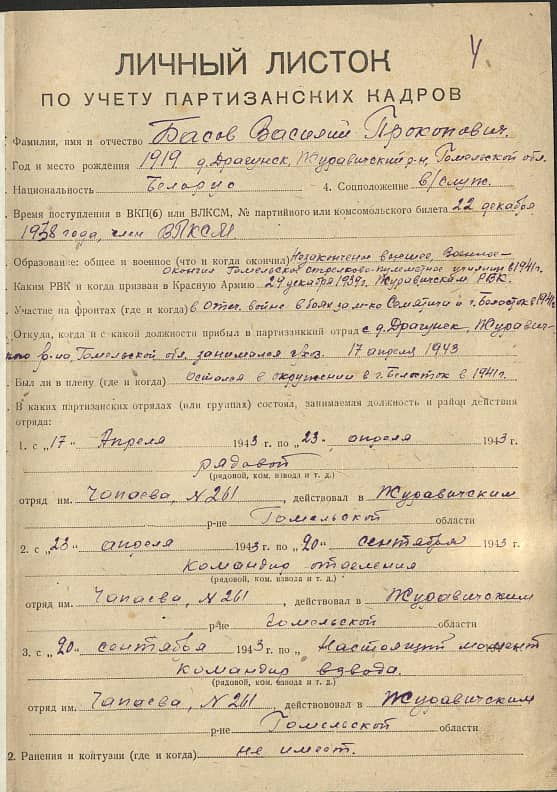 4.
ЛИЧНЫЙ ЛИСТОК
ПО УЧЕТУ ПАРТИЗАНСКИХ КАДРОВ
Фамилия, имя и отчество Басов Василий Прокопович.
Год и место рождения 1919 д. Драгунск, Журавичский р-н, Гомельской обл.
Национальность Белорус 4. Соцположение в/служ.
Время поступления в ВКП(б) или ВЛКСМ, № партийного или комсомольского билета 22 декабря
1938 года, член ВЛКСМ
Образование: общее и военное (что и когда окончил) Незаконченн высшее, Военное-
окончил Гомельское стрелково-пулеметное училище в 1941 г.
Каким РВК и когда призван в Красную Армию 24 декабря 1939 г. Журавичским РВК.
Участие на фронтах (где и когда) в Отеч. войне в боях за м-ко Семятичи и г. Белосток в 1941 г.
Откуда, когда и с какой должности прибыл в партизанский отряд с д. Драгунск, Журавич-
ского р-на, Гомельской обл. занимался с/хоз. 17 апреля 1943
Был ли в плену (где и когда) остался в окружении в г. Белосток в 1941 г.
В каких партизанских отрядах (или группах) состоял, занимаемая должность и район действия
отряда:
1. с „17" Апреля 1943 г. по „23" апреля 1943 г.
рядовой
(рядовой, ком. взвода и т. д.)
отряд им. Чапаева, N 261, действовал в Журавичским
р-не Гомельской области
2. с „23" апреля 1943 г. по „20" сентября 1943 г.
командир отделения
(рядовой, ком. взвода и т. д.)
отряд им. Чапаева, N 261, действовал в Журавичским
р-не Гомельской области
3. с „20" сентября 1943 г. по „Настоящий момент
командир взвода.
(рядовой, ком. взвода и т. д.)
отряд им. Чапаева, N 261, действововал в Журавичским
р-не Гомельской области
2. Ранения и контузии (где и когда) не имеет.